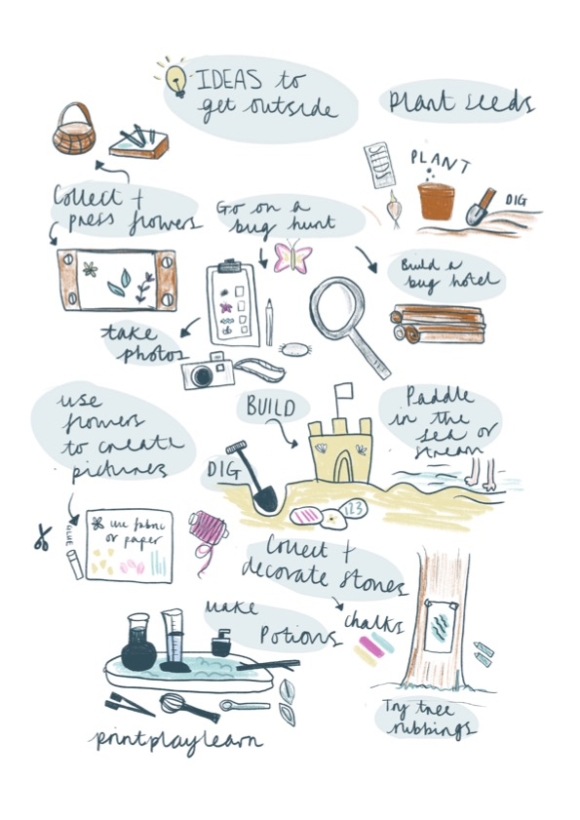 IDEAS to
get outside
plant seeds
SEEDS
PLANT
DIG
Collect +
press flowers
Go on a
bug hunt
Build a
bug hotel
take
photos
use
flowers
to create
pictures
BUILD
DIG
Paddle
in the
sea or
stream
123
GLUE
use fabric
or paper
Collect +
decorate stones
chalks
Make
Potions
Try tree
rubbings
printplaylearn